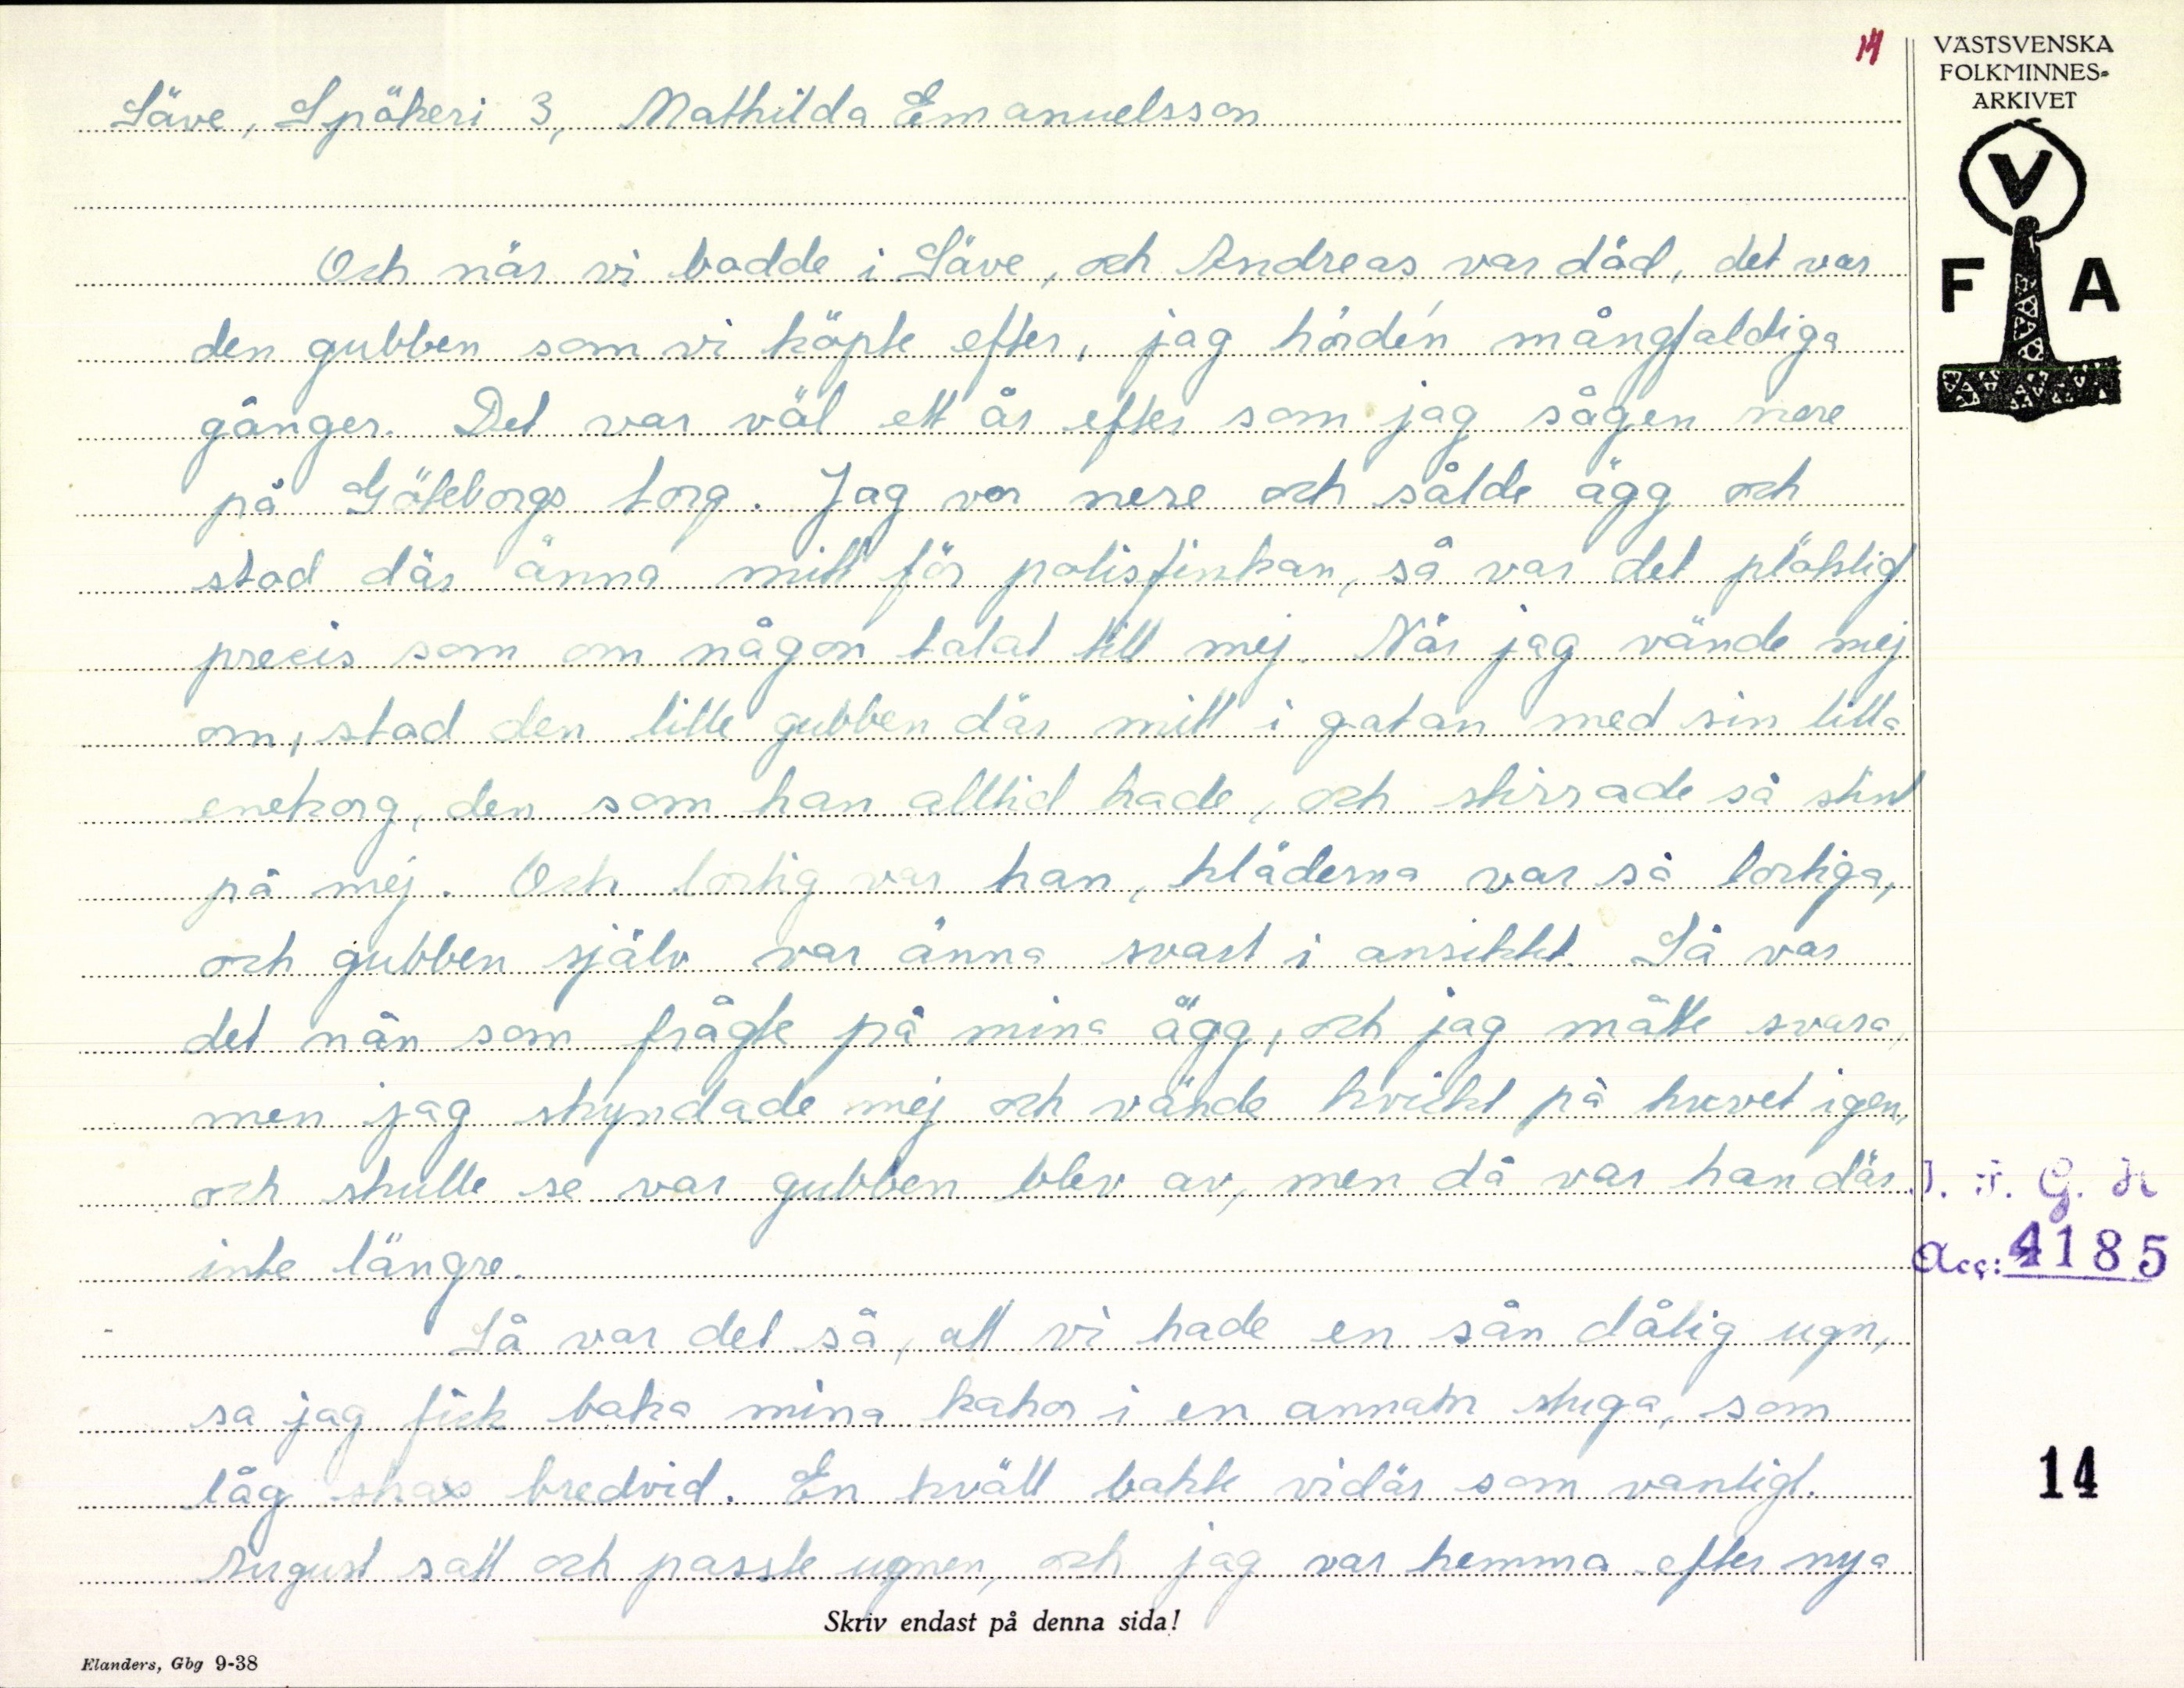 14
VÄSTSVENSKA
FOLKMINNES-
ARKIVET
V
F A
Säve, Spökeri 3, Mathilda Emanuelsson
Och när vi bodde i Säve, och Andreas var död, det var
den gubben som vi köpte efter, jag hörden mångfaldiga
gånger. Det var väl ett år efter som jag sågen nere
på Göteborgs torg. Jag var nere och sålde ägg och
stod där änna mitt för polisfinkan, så var det plötslig
precis som om någon talat till mej. När jag vände mej
om, stod den lille gubben där mitt i gatan med sin lilla
enekorg, den som han alltid hade, och stirrade så stint
på mej. Och lortig var han, kläderna var så lortiga,
och gubben själv var änna svart i ansiktet. Så var
det nån som frågte på mina ägg, och jag måtte svara,
men jag skyndade mej och vände kvickt på huvet igen,
och skulle se var gubben blev av, men då var han där
inte längre.
Så var det så, att vi hade en sån dålig ugn,
sa jag fick baka mina kakor i en annan stuga, som
låg strax bredvid. En kväll bakte vi där som vanligt.
August satt och passte ugnen, och jag var hemma efter nya
I. F. G. H
Acc: 4185
14
Skriv endast på denna sida!
Elanders, Gbg 9-38